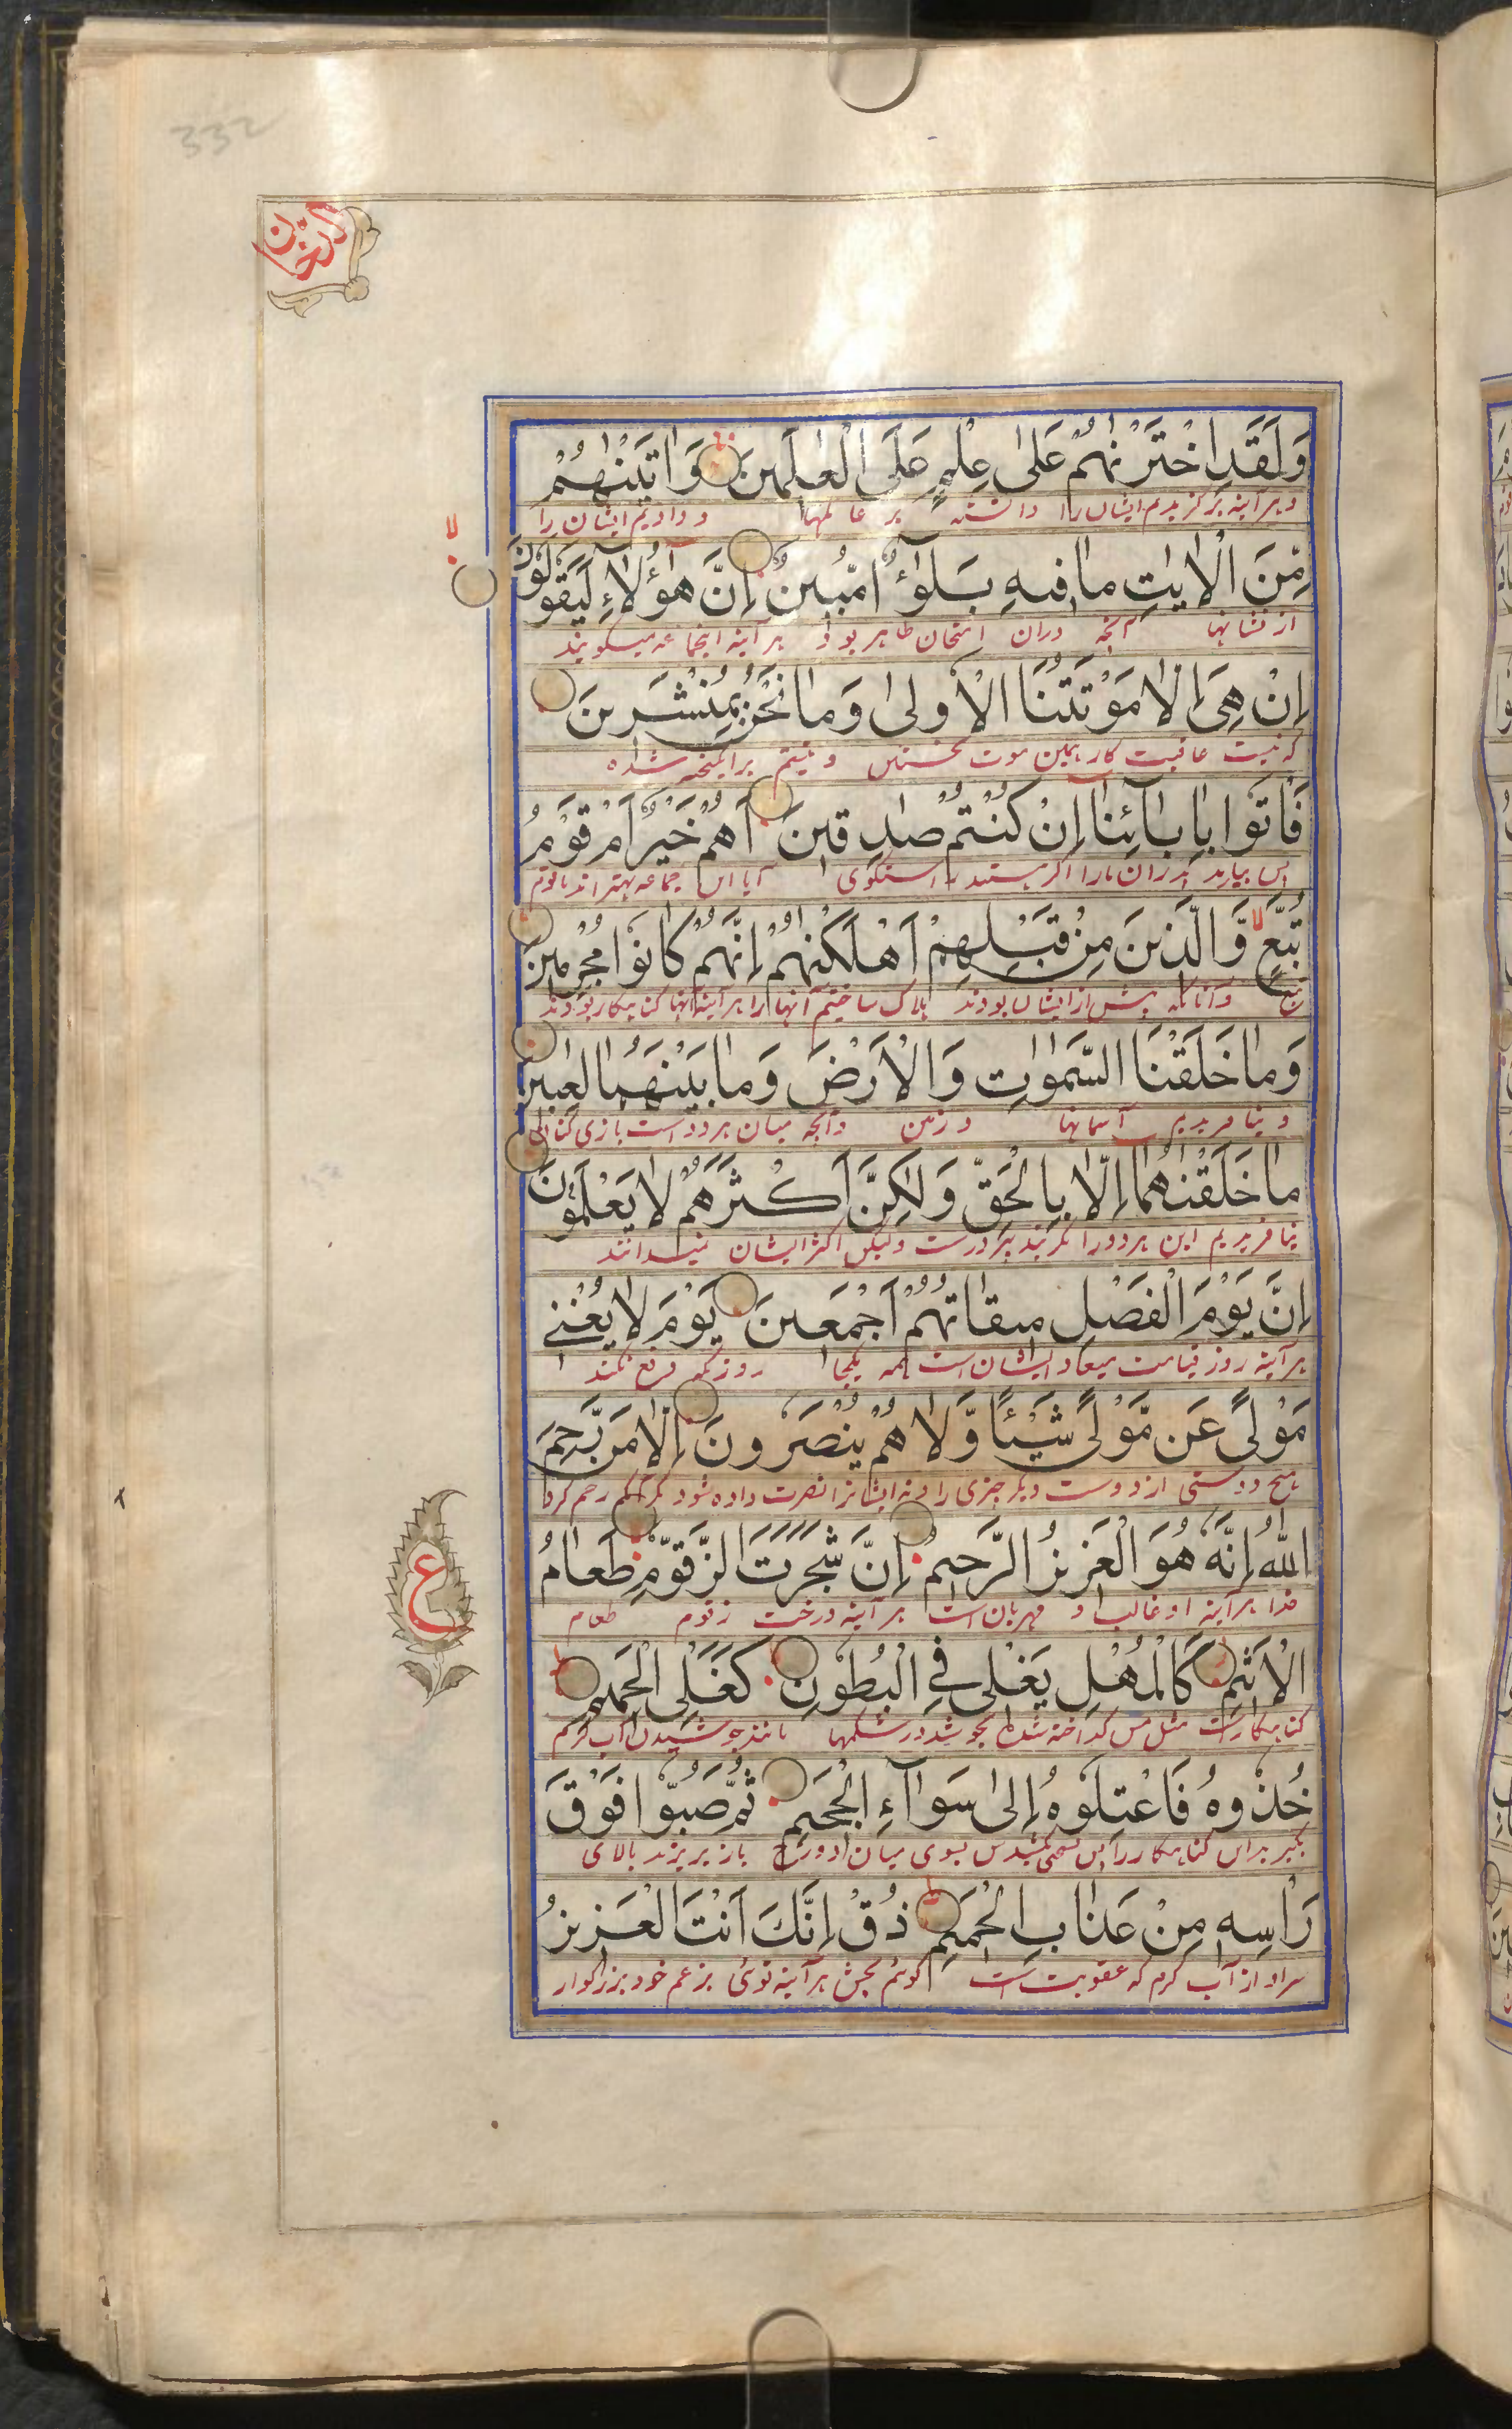 332
الدخان
وَلَقَدِ اخْتَرْنٰهُمْ عَلٰى عِلْمٍ عَلَى الْعٰلَمِينَ ط وَاٰتَيْنٰهُمْ
و هر آینه برگزیدیم ایشان را دانسته بر عالمها و دادیم ایشان را
مِّنَ الْاٰيٰتِ مَا فِيهِ بَلٰٓؤٌا مُّبِينٌ اِنَّ هٰٓؤُلَآءِ لَيَقُولُونَ لا
از نشانها آنچه دران امتحان ظاهر بود هر آینه اینجماعه میگویند
اِنْ هِىَ اِلَّا مَوْتَتُنَا الْاُولٰى وَمَا نَحْنُ بِمُنْشَرِينَ
که نیست عاقبت کار همین موت نخستین و نیستیم برانگیخته شده
فَاْتُوا بِاٰبَآئِنَآ اِنْ كُنْتُمْ صٰدِقِينَ اَهُمْ خَيْرٌ اَمْ قَوْمُ
پس بیارید پدران مارا اگر هستید راستگوی آیا این جماعه بهتر اند یا قوم
تُبَّعٍ لا وَّالَّذِينَ مِنْ قَبْلِهِمْ اَهْلَكْنٰهُمْ اِنَّهُمْ كَانُوا مُجْرِمِينَ
تبع و آنانکه پیش از ایشان بودند هلاک ساختیم آنها را هر آینه آنها گناهکار بودند
وَمَا خَلَقْنَا السَّمٰوٰتِ وَالْاَرْضَ وَمَا بَيْنَهُمَا لٰعِبِينَ
و نیافریدیم آسمانها و زمین و آنچه میان هر دو است بازی کنان
مَا خَلَقْنٰهُمَآ اِلَّا بِالْحَقِّ وَلٰكِنَّ اَكْثَرَهُمْ لَا يَعْلَمُونَ
نیافریدیم این هر دو را مگر بتدبیر درست ولیکن اکثر ایشان نمیدانند
اِنَّ يَوْمَ الْفَصْلِ مِيقَاتُهُمْ اَجْمَعِينَ يَوْمَ لَا يُغْنِى
هر آینه روز قیامت میعاد ایشان است همه یکجا روزیکه دفع نکند
مَوْلًى عَنْ مَّوْلًى شَيْـًٔا وَّلَا هُمْ يُنْصَرُونَ اِلَّا مَنْ رَّحِمَ
هیچ دوستی از دوست دیگر چیزی را و نه ایشانرا نصرت داده شود مگر آنکه رحم کرد
اللّٰهُ اِنَّهُ هُوَ الْعَزِيزُ الرَّحِيمُ اِنَّ شَجَرَتَ الزَّقُّومِ طَعَامُ
خدا هر آینه او غالب و مهربان است هر آینه درخت زقوم طعام
ع
الْاَثِيمِ كَالْمُهْلِ يَغْلِى فِى الْبُطُونِ كَغَلْىِ الْحَمِيمِ ط
گناهکار است مثل مس گداخته شده بجوشد در شکمها مانند جوشیدن آب گرم
خُذُوهُ فَاعْتِلُوهُ اِلٰى سَوَآءِ الْجَحِيمِ ثُمَّ صُبُّوا فَوْقَ
بگیرید این گناهکار را پس بسوی میان دوزخ باز بریزید بالای
رَاْسِهِ مِنْ عَذَابِ الْحَمِيمِ ط ذُقْ اِنَّكَ اَنْتَ الْعَزِيزُ
سر او از آب گرم که عقوبت است گوئیم بچش هر آینه توئی بزعم خود بزرگوار